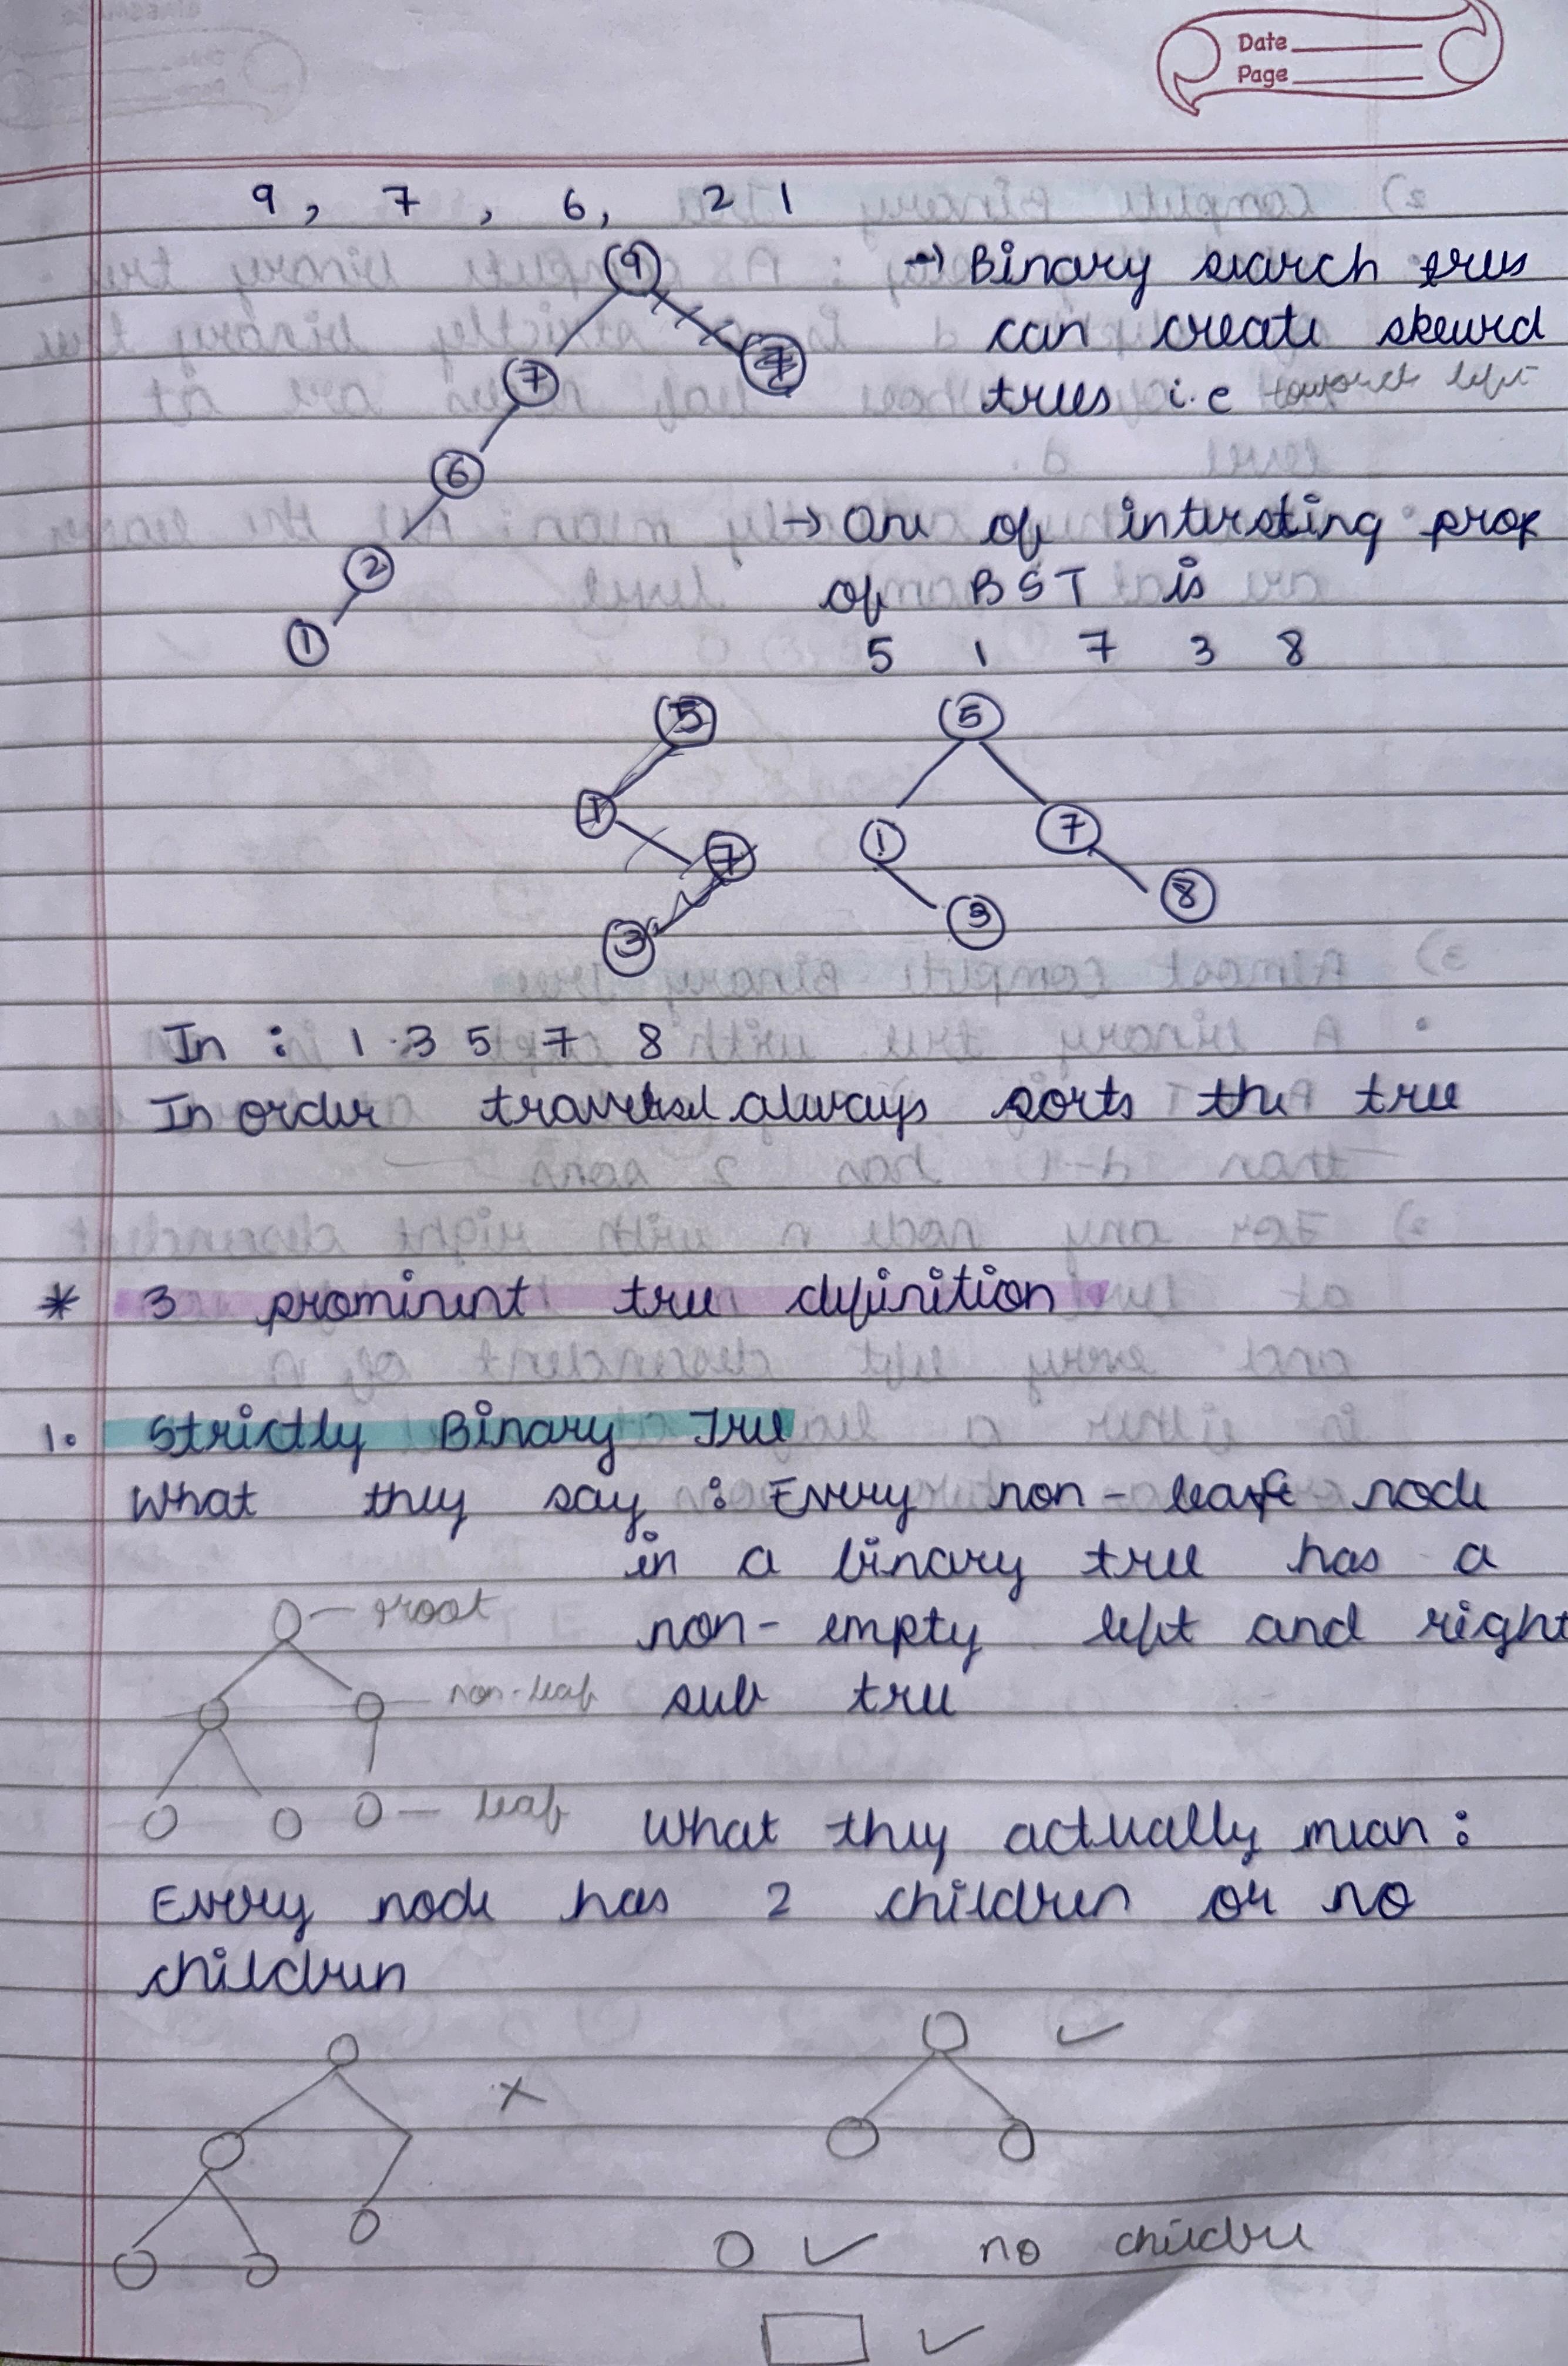 Date
Page
9, 7, 6, 2 1
9
7
6
2
1
→ Binary search trees
can create skewed
trees i.e towards left
→ One of interesting prop
of BST is
5 1 7 3 8
5
1
7
3
5
1
7
3
8
In : 1 3 5 7 8
In order traversal always sorts the tree
* 3 prominent tree definition
1. Strictly Binary Tree
What they say : Every non-leaf node
in a binary tree has a
root
non-empty left and right
non-leaf
sub tree
leaf
What they actually mean :
Every node has 2 children or no
children
✓
×
✓ no childre
✓